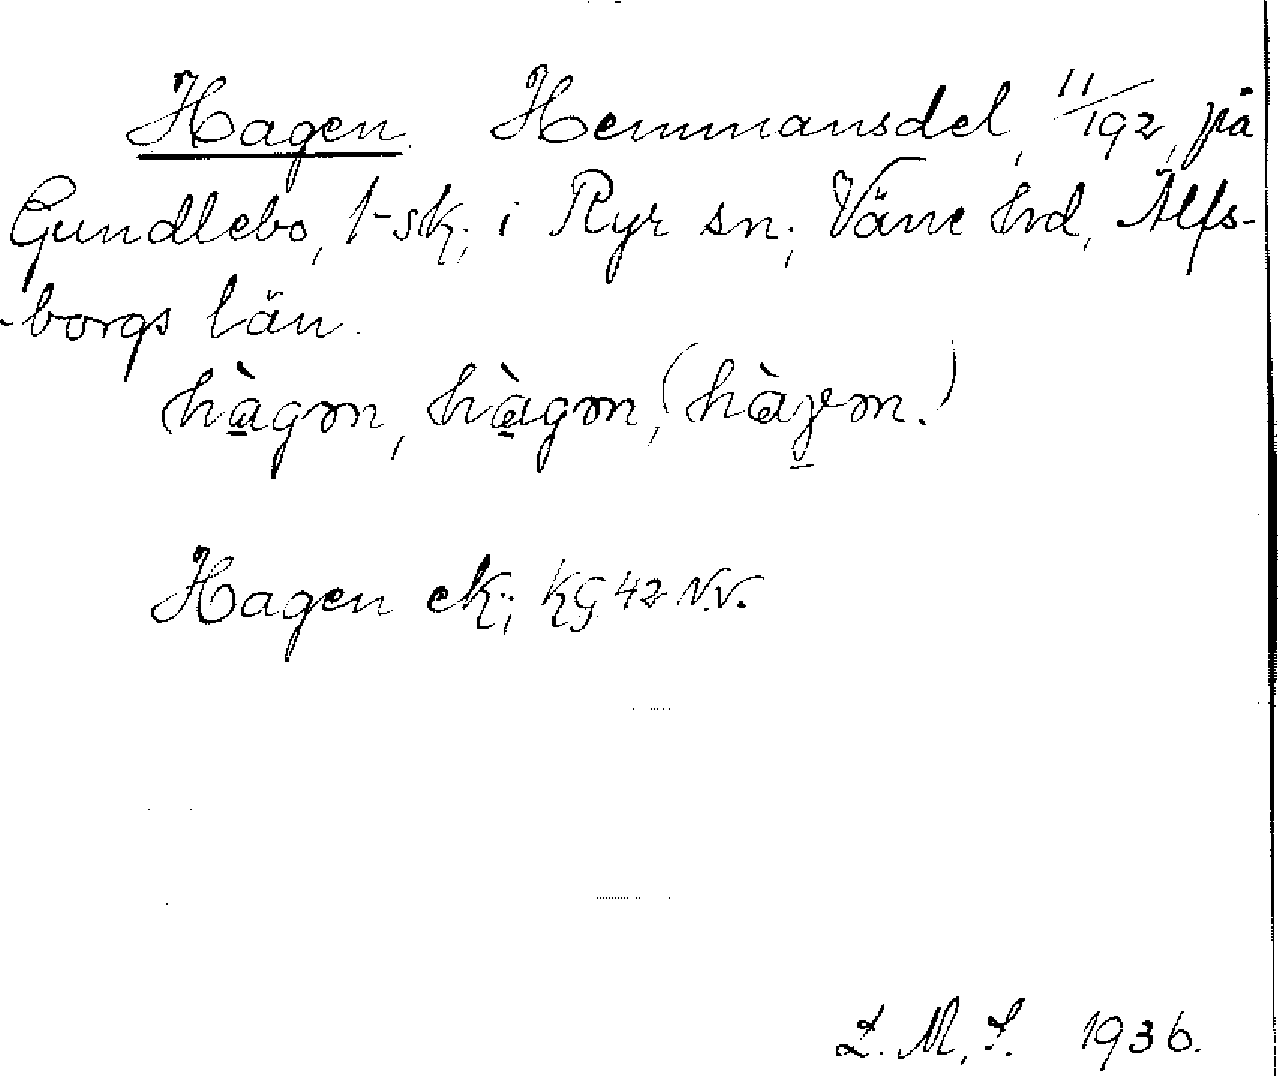 Hagen. Hemmansdel, 11/192, på
Gundlebo, 1-sk; i Ryr sn; Väne hrd, Älfs-
-borgs län.
hàgən, hàgən, (hàɣən.)
Hagen ek; KG 42 N.V.
L. M. S. 1936.